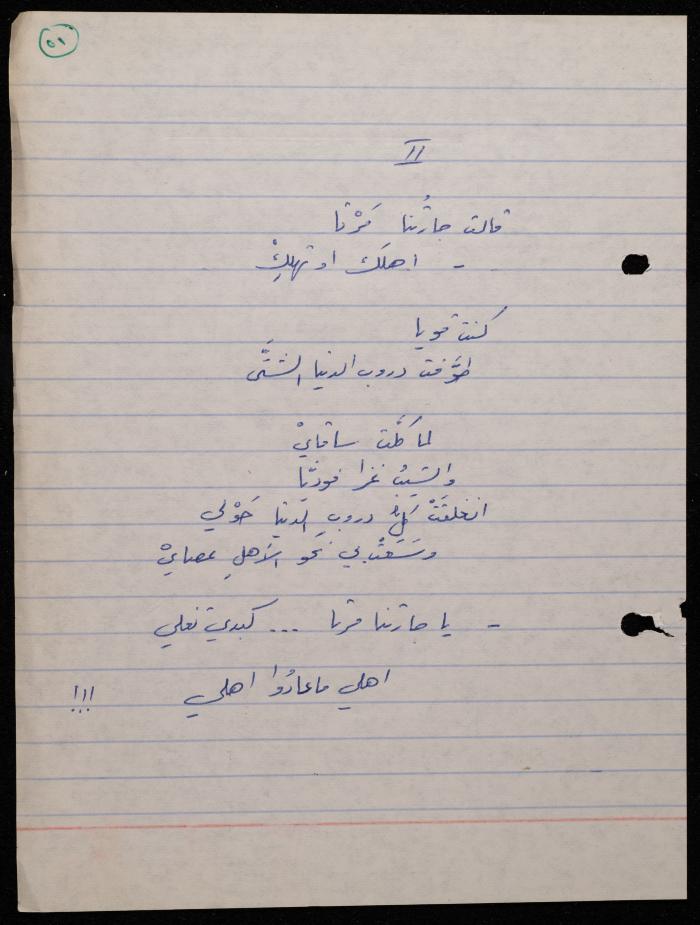 ٥١
II
قالت جارتُنا مَرْتا
- اهلَك او تهلِكْ
كنت قويا
طوَّفت دروب الدنيا الشتَّى
لما كلَّت ساقايْ
والشيبُ غزا فوديّا
انغلقَتْ كلُّ دروبِ الدنيا حَوْلي
وسَعَتْ بي نحوَ الأهلِ عصايْ
- يا جارتنا مرتا ... كبدي تغلي
اهلي ما عادُوا اهلي !!!